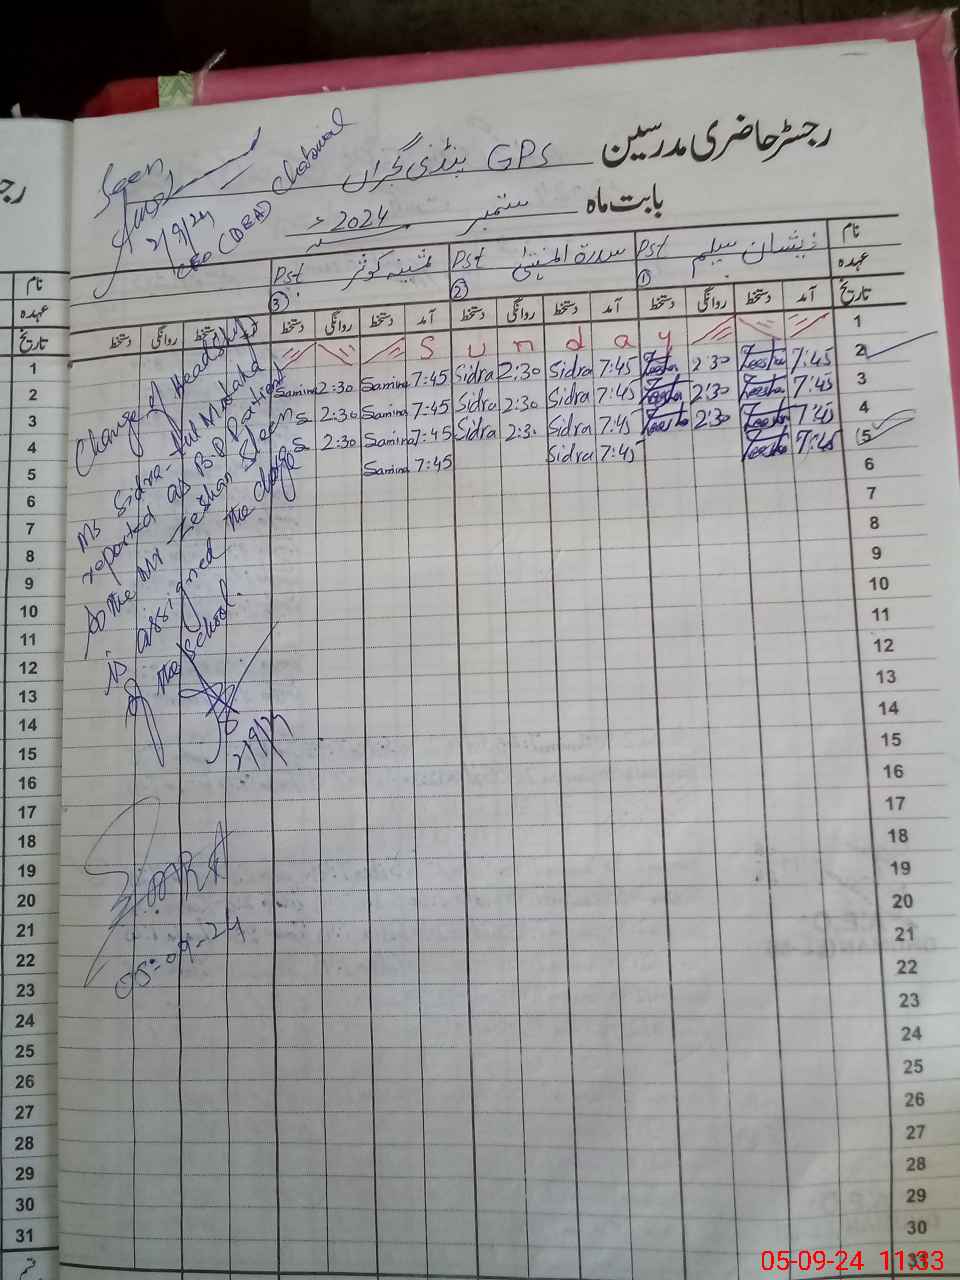 رجسٹر حاضری مدرسین GPS پنڈی گجراں
بابت ماہ ستمبر 2024ء
Seen
2/9/24
CEO (DEA) Chakwal
نام ذیشان سلیم Pst سدرۃ المنتہیٰ Pst ثمینہ کوثر Pst
عہدہ ① ② ③
تاریخ آمد دستخط روانگی دستخط آمد دستخط روانگی دستخط آمد دستخط روانگی دستخط دستخط روانگی دستخط
1 Sunday
2 7:45 Zeesha 2:30 Zeesha 7:45 Sidra 2:30 Sidra 7:45 Samina 2:30 Samina
3 7:45 Zeesha 2:30 Zeesha 7:45 Sidra 2:30 Sidra 7:45 Samina 2:30
4 7:45 Zeesha 2:30 Zeesha 7:45 Sidra 2:3 Sidra 7:45 Samina 2:30
5 7:45 Zeesha 7:45 Sidra 7:45 Samina
6
7
8
9
10
11
12
13
14
15
16
17
18
19
20
21
22
23
24
25
26
27
28
29
30
31
Change of Headship
Ms Sidra-tul Muntaha
reported as B P Patient
so the Mr Zeshan Sleem
is assigned the charge
of the school.
2/9/24
05-09-24
نام
عہدہ
تاریخ
1
2
3
4
5
6
7
8
9
10
11
12
13
14
15
16
17
18
19
20
21
22
23
24
25
26
27
28
29
30
31
05-09-24 11:33